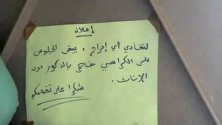 إعلان
لتفادي أي إحراج، يبقى الجلوس
على الكراسي خاص بالذكور دون
الإناث.
شكرا على تفهمكم